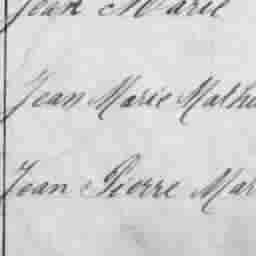 Jean Marie
Jean Marie Mathu
Jean Pierre Mar